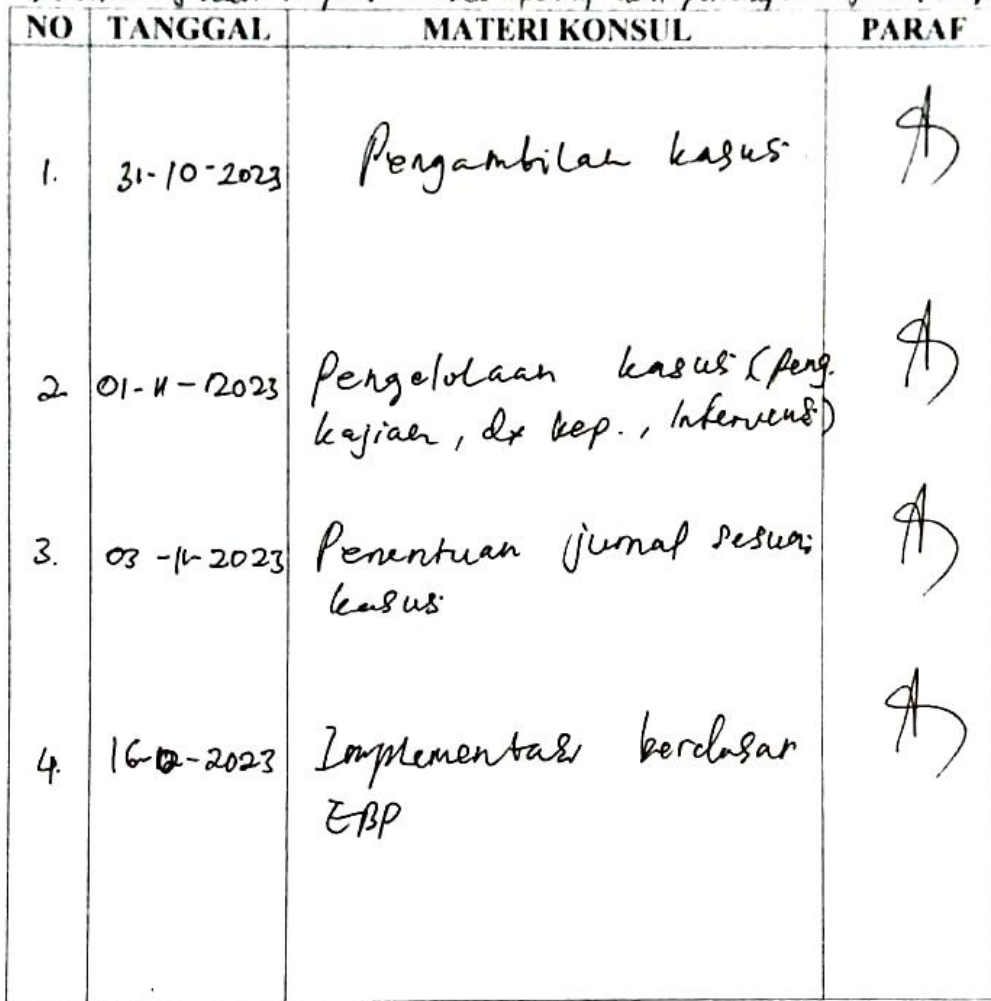 NO TANGGAL MATERI KONSUL PARAF
1. 31-10-2023 Pengambilan kasus
2. 01-11-2023 Pengelolaan kasus (peng.
kajian, dx kep., Intervensi)
3. 03-11-2023 Penentuan jurnal sesuai
kasus
4. 16-12-2023 Implementasi berdasar
EBP